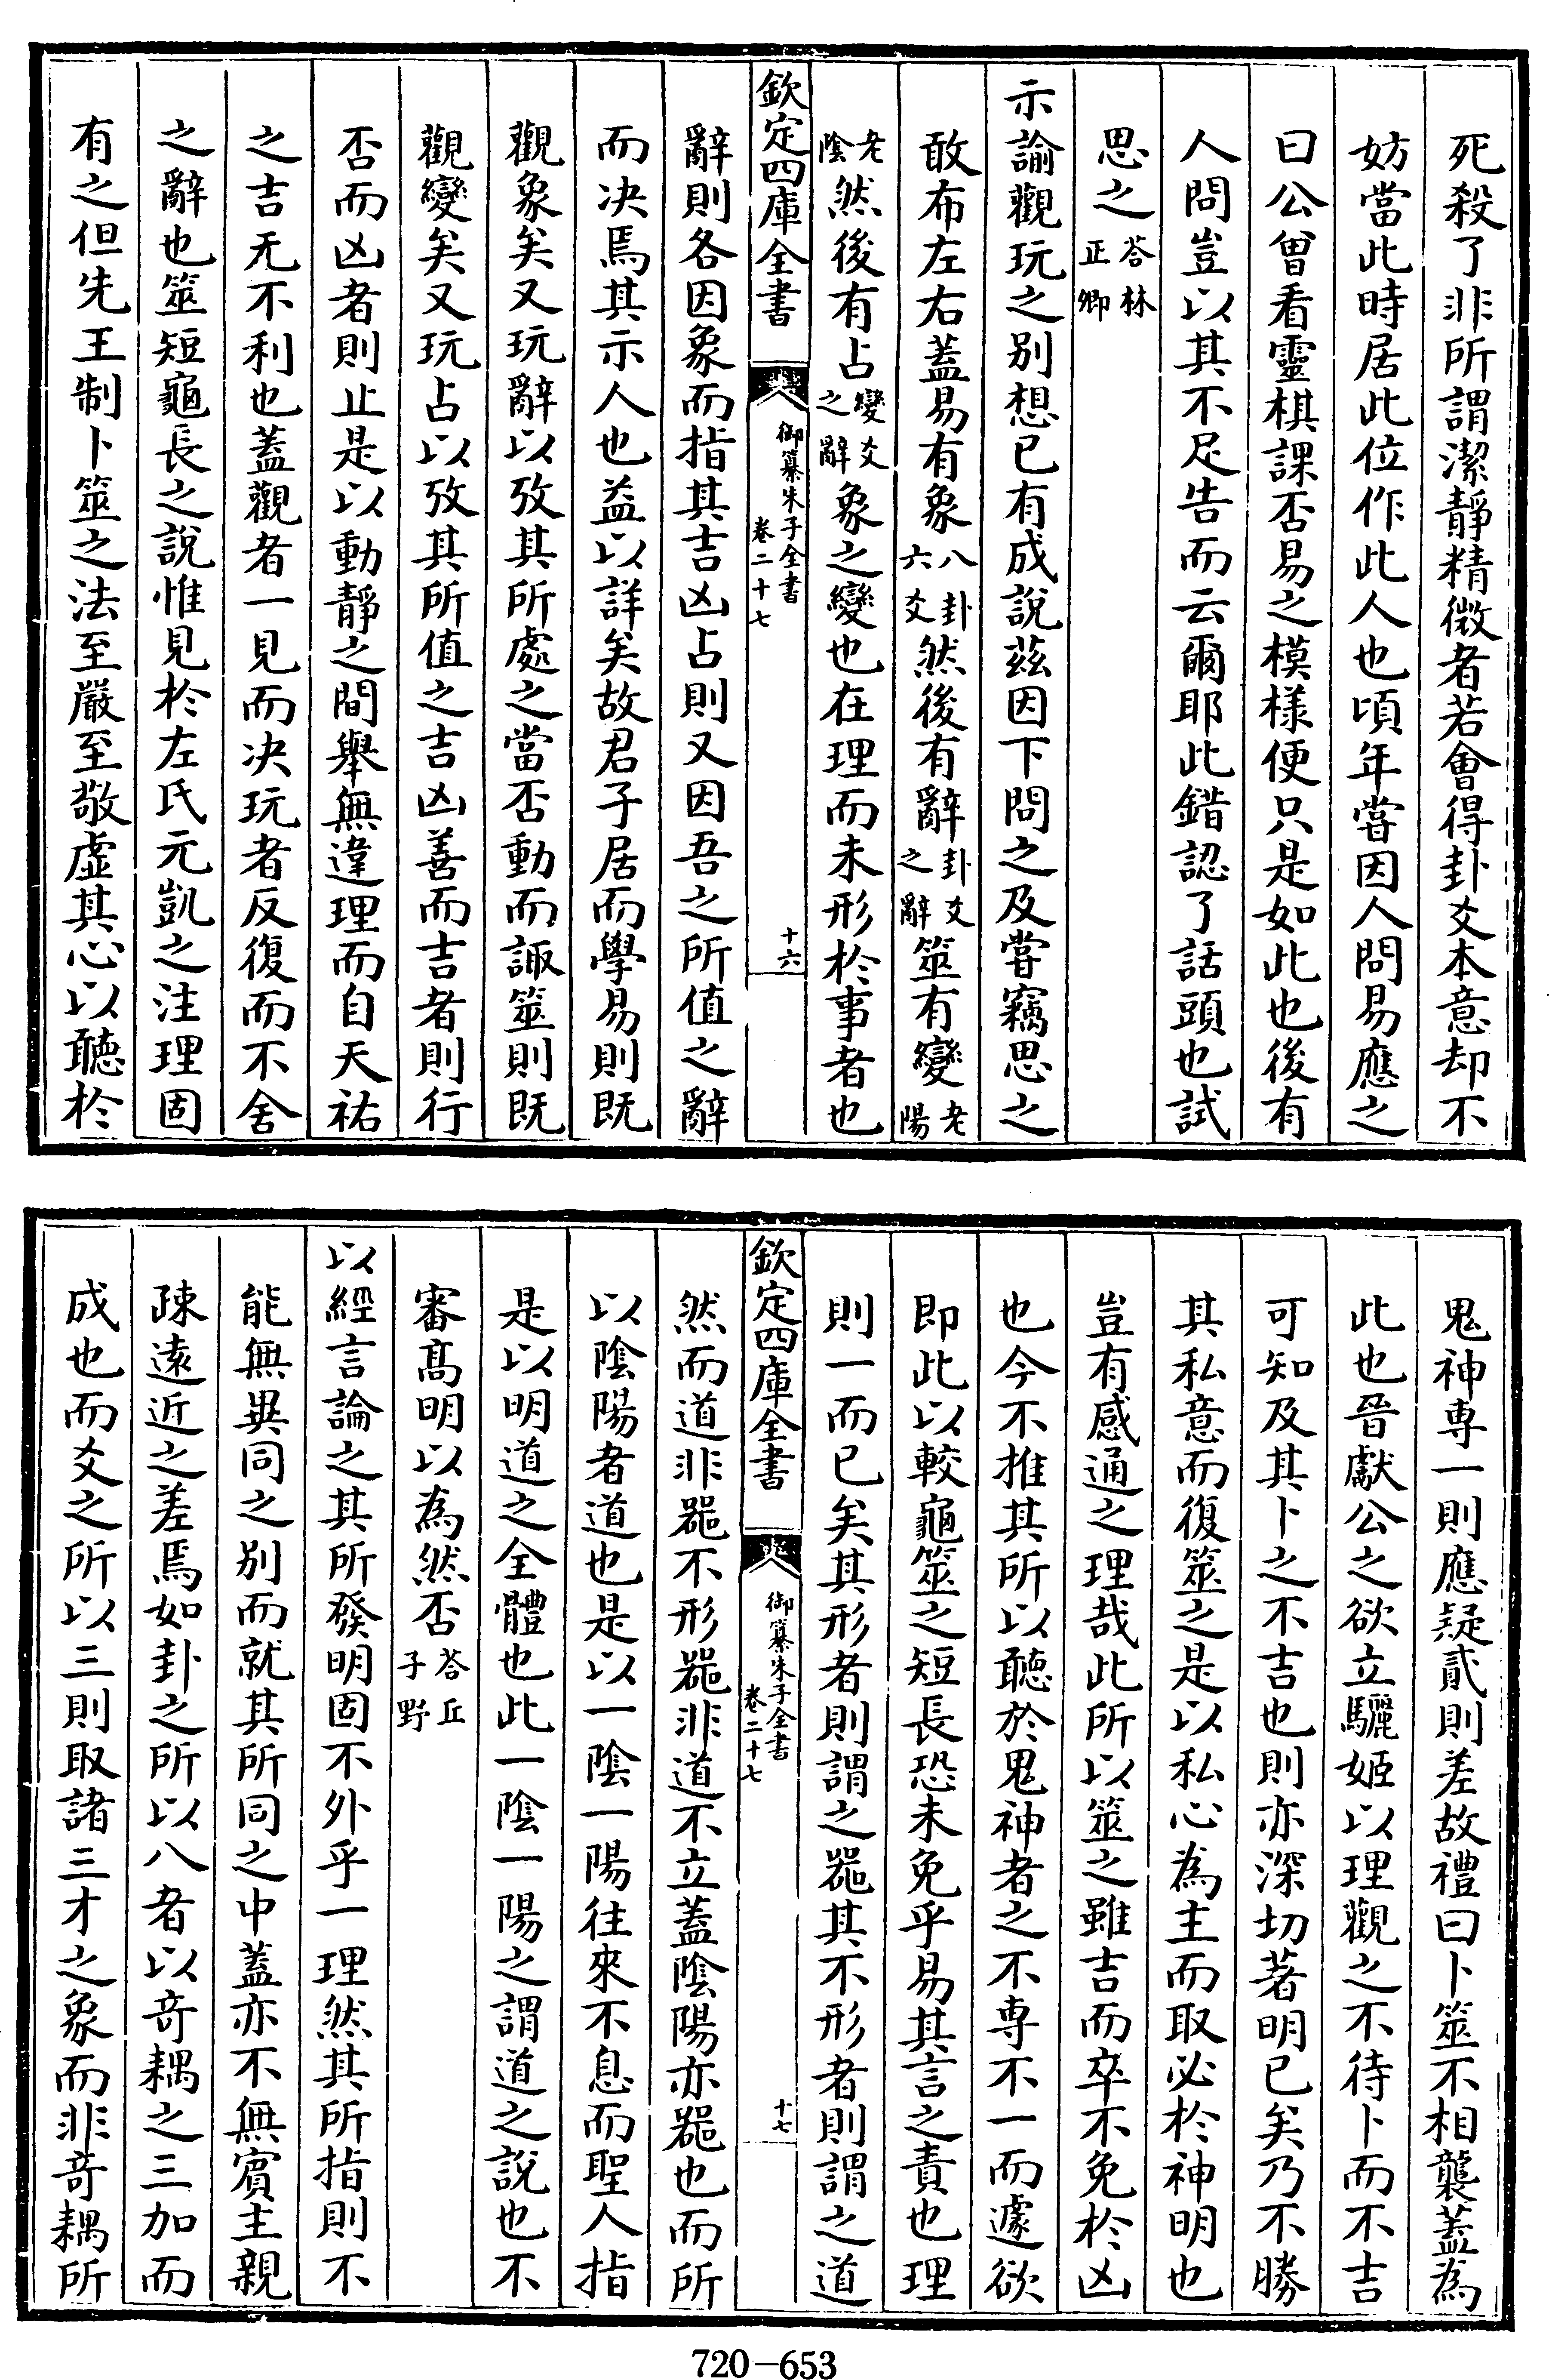 死殺了非所謂潔靜精微者若會得卦爻本意却不
妨當此時居此位作此人也頃年嘗因人問易應之
曰公曾看靈棋課否易之模様便只是如此也後有
人問豈以其不足告而云爾耶此錯認了話頭也試
思之答林正卿
示諭觀玩之别想已有成說茲因下問之及嘗竊思之
敢布左右蓋易有象八卦六爻然後有辭卦爻之辭筮有變老陽
老陰然後有占變爻之辭象之變也在理而未形於事者也
欽定四庫全書
御纂朱子全書
卷二十七
十六
辭則各因象而指其吉凶占則又因吾之所值之辭
而决焉其示人也益以詳矣故君子居而學易則既
觀象矣又玩辭以攷其所處之當否動而諏筮則既
觀變矣又玩占以攷其所值之吉凶善而吉者則行
否而凶者則止是以動靜之間舉無違理而自天祐
之吉无不利也蓋觀者一見而决玩者反復而不舍
之辭也筮短龜長之說惟見於左氏元凱之注理固
有之但先王制卜筮之法至嚴至敬虛其心以聽於
鬼神専一則應疑貳則差故禮曰卜筮不相襲蓋為
此也晉獻公之欲立驪姬以理觀之不待卜而不吉
可知及其卜之不吉也則亦深切著明已矣乃不勝
其私意而復筮之是以私心為主而取必於神明也
豈有感通之理哉此所以筮之雖吉而卒不免於凶
也今不推其所以聽於鬼神者之不専不一而遽欲
即此以較龜筮之短長恐未免乎易其言之責也理
則一而已矣其形者則謂之噐其不形者則謂之道
欽定四庫全書
御纂朱子全書
卷二十七
十七
然而道非噐不形噐非道不立蓋陰陽亦噐也而所
以陰陽者道也是以一陰一陽往來不息而聖人指
是以明道之全體也此一陰一陽之謂道之說也不
審髙明以為然否答丘子野
以經言論之其所發明固不外乎一理然其所指則不
能無異同之别而就其所同之中蓋亦不無賓主親
疎遠近之差焉如卦之所以八者以竒耦之三加而
成也而爻之所以三則取諸三才之象而非竒耦所
720-653